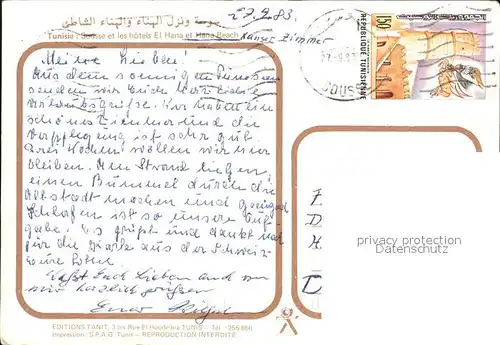 سوسة ونزل الهناء والهناء الشاطئ
27.9.83.
Tunisie : Sousse et les hôtels El Hana et Hana Beach
unser Zimmer
REPUBLIQUE TUNISIENNE
150
Meine Lieben!
Aus dem sonnigen Tunesien
senden wir Euch herzliche
Urlaubsgrüße. Wir haben ein
schönes Zimmer und die
Verpflegung ist sehr gut.
Vier Wochen wollen wir hier
bleiben. Am Strand liegen,
einen Bummel durch die
Altstadt machen und genug
Schlafen ist so unsere Auf-
gabe. Es grüßt und dankt noch
für die Karte aus der Schweiz
Eure
Lieben und von
mir herzlich grüßen
Euer
privacy protection
Datenschutz
EDITIONS TANIT, 3 bis Rue El Houdeibia TUNIS - Tél : 255.866
Impression : S.P.A.G. Tunis — REPRODUCTION INTERDITE